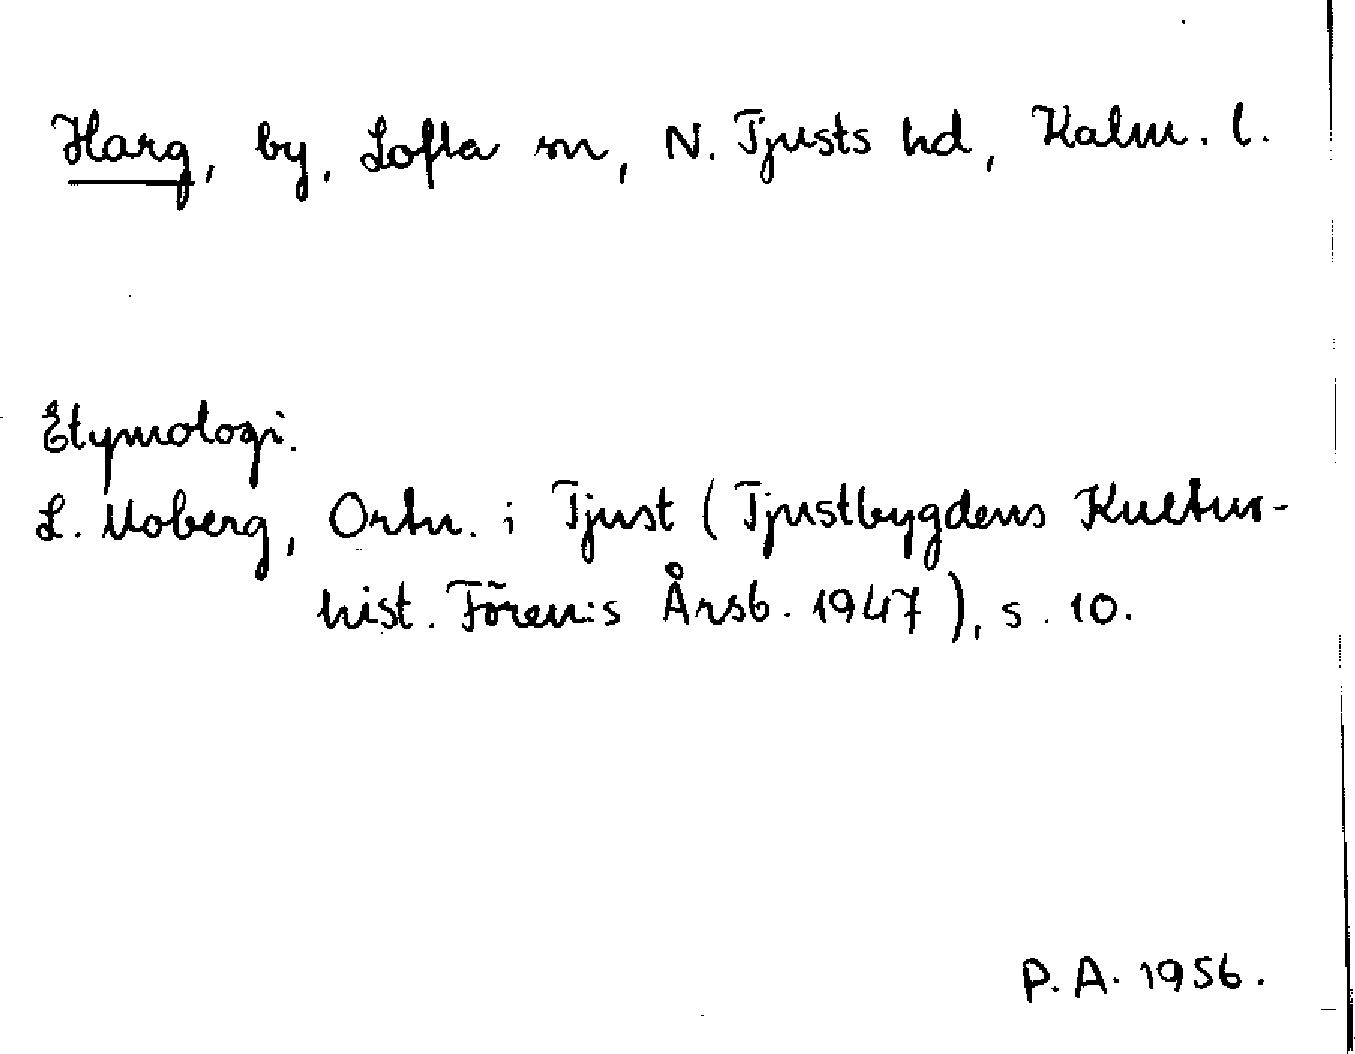 Harg, by, Lofta sn, N. Tjusts hd, Kalm. l.
Etymologi.
L. Moberg, Ortn. i Tjust (Tjustbygdens Kultur-
hist. Fören:s Årsb. 1947), s. 10.
P. A. 1956.